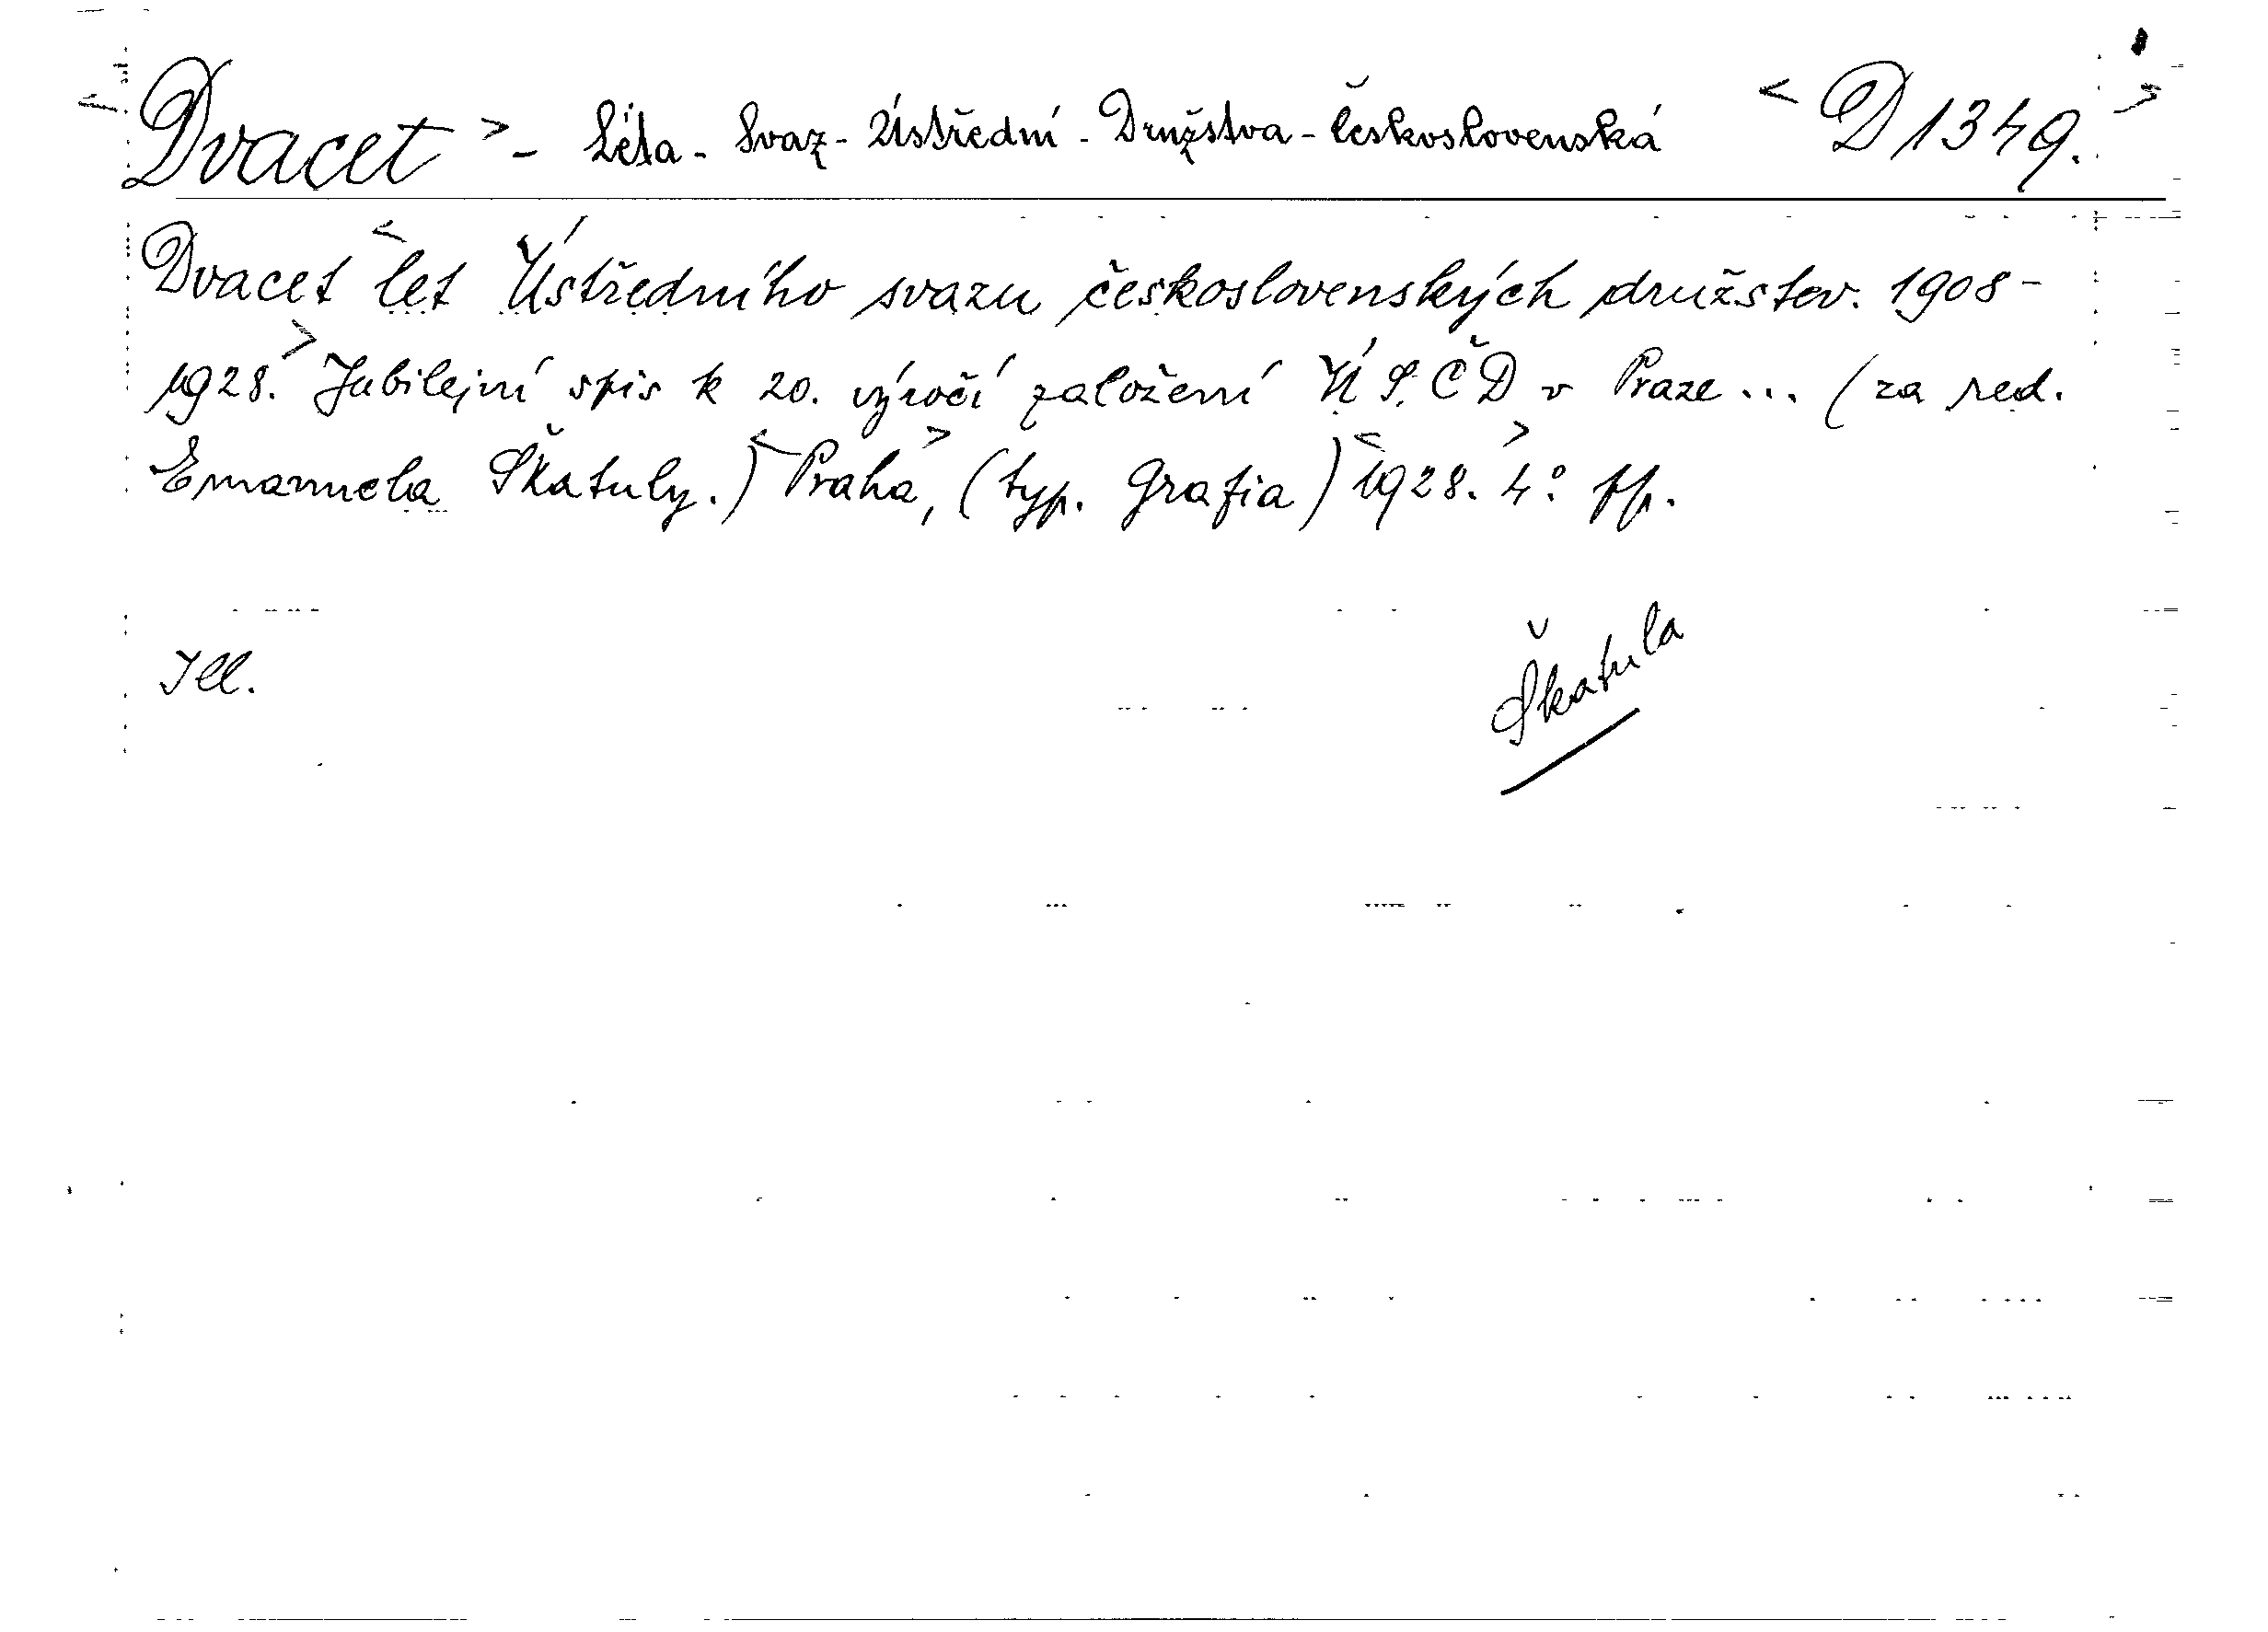 <Dvacet> - Léta - Svaz - Ústřední - Družstva - Československá <D 1349.>
Dvacet <let Ústředního svazu československých družstev. 1908-
1928.> Jubilejní spis k 20. výročí založení Ú.S.ČD v Praze... (za red.
Emanuela Škatuly.) <Praha>, (typ. Grafia) <1928. 4°.> pp.
Ill.
Škatula